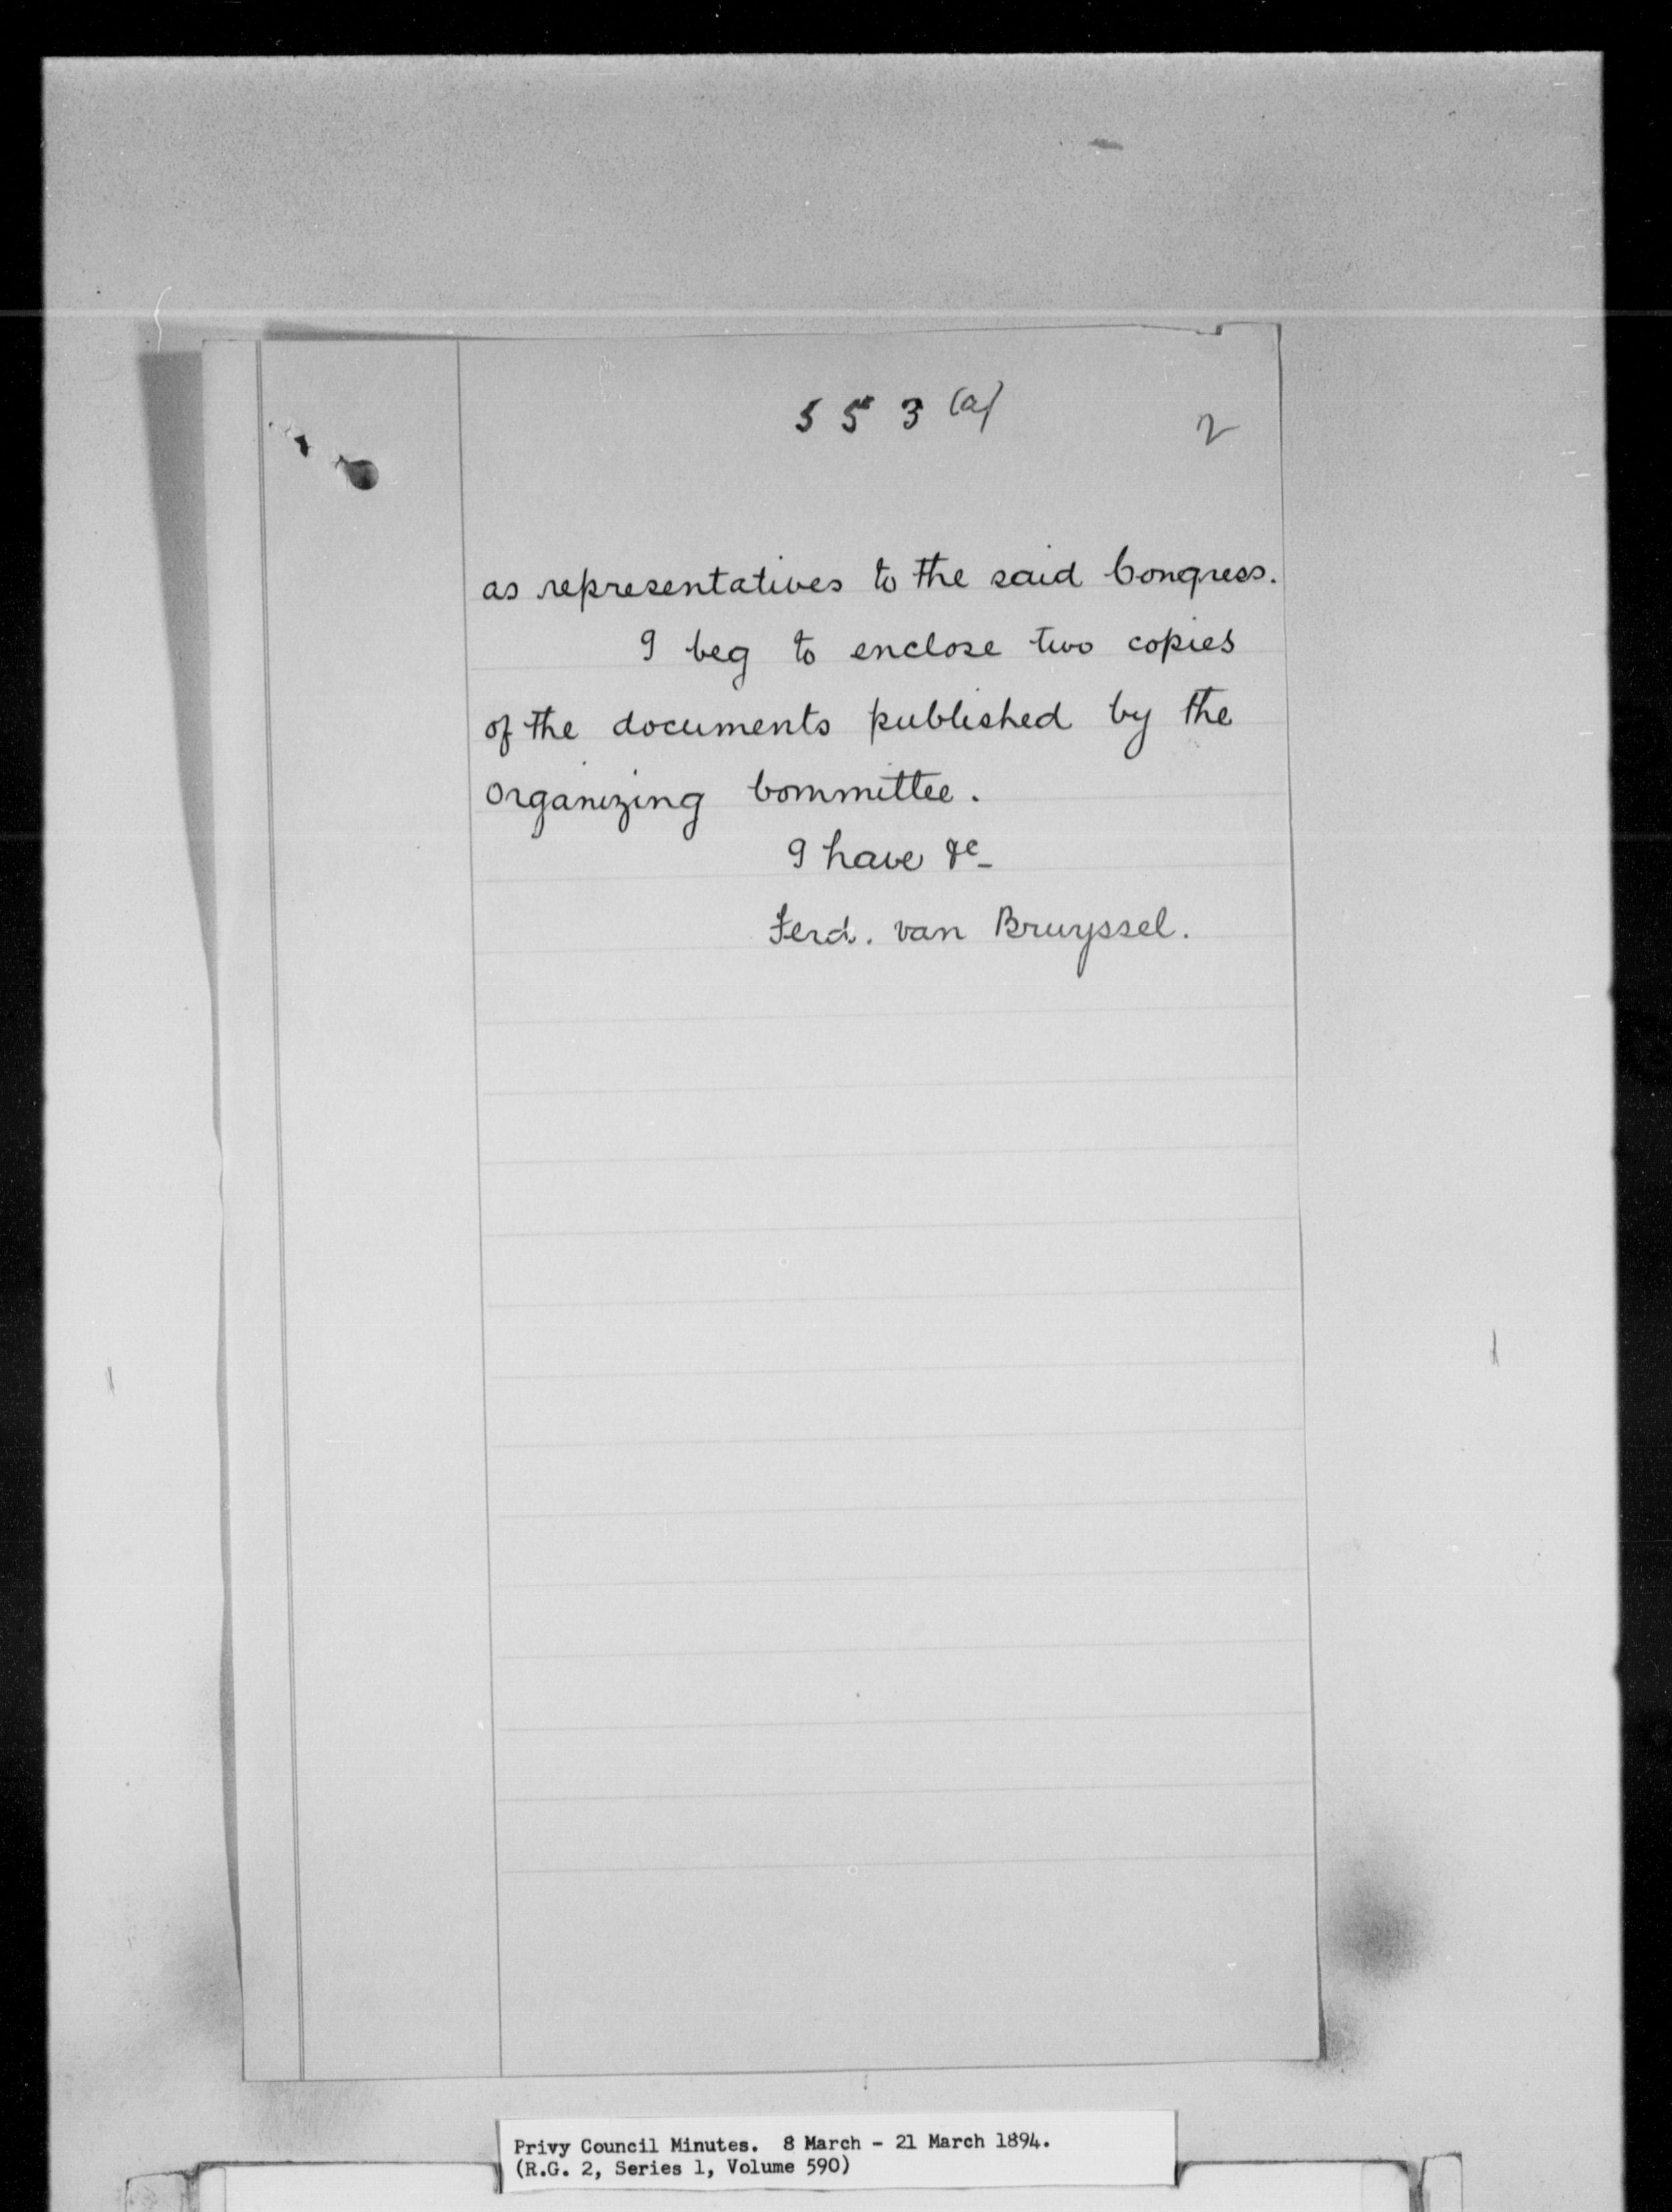 553 (a)
2
as representatives to the said Congress.
I beg to enclose two copies
of the documents published by the
Organizing Committee.
I have &c
Ferd. van Bruyssel.
Privy Council Minutes. 8 March - 21 March 1894.
(R.G. 2, Series 1, Volume 590)